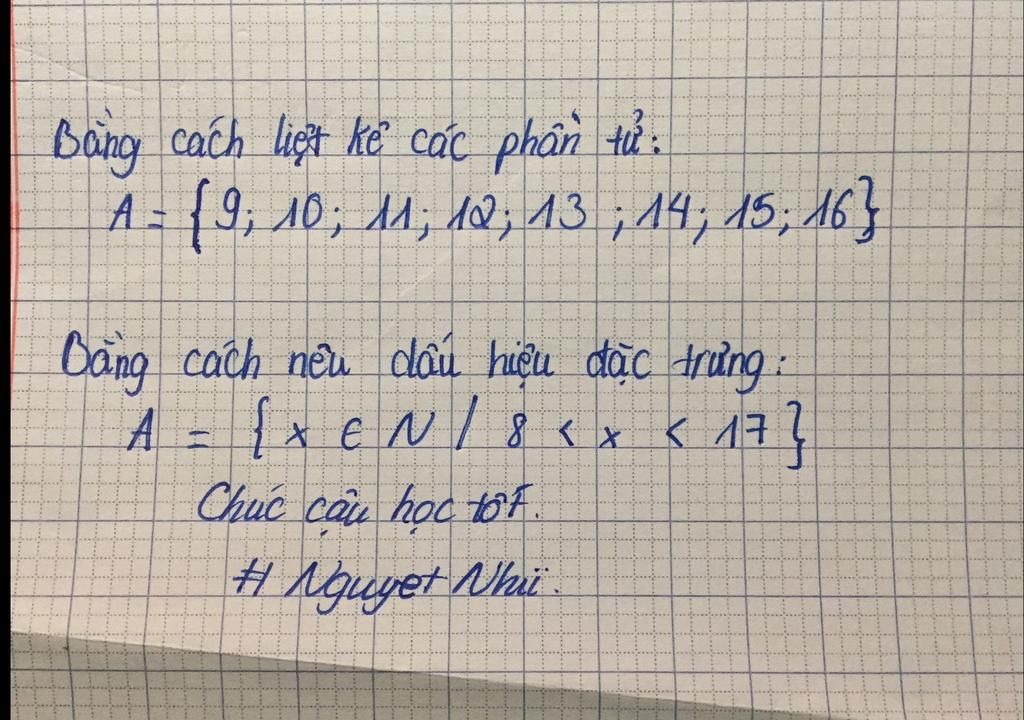 Bằng cách liệt kê các phần tử:
A = {9; 10; 11; 12; 13 ; 14; 15; 16}
Bằng cách nêu dấu hiệu đặc trưng:
A = { x ∈ N / 8 < x < 17 }
Chúc cậu học tốt.
# Nguyet Nhii.